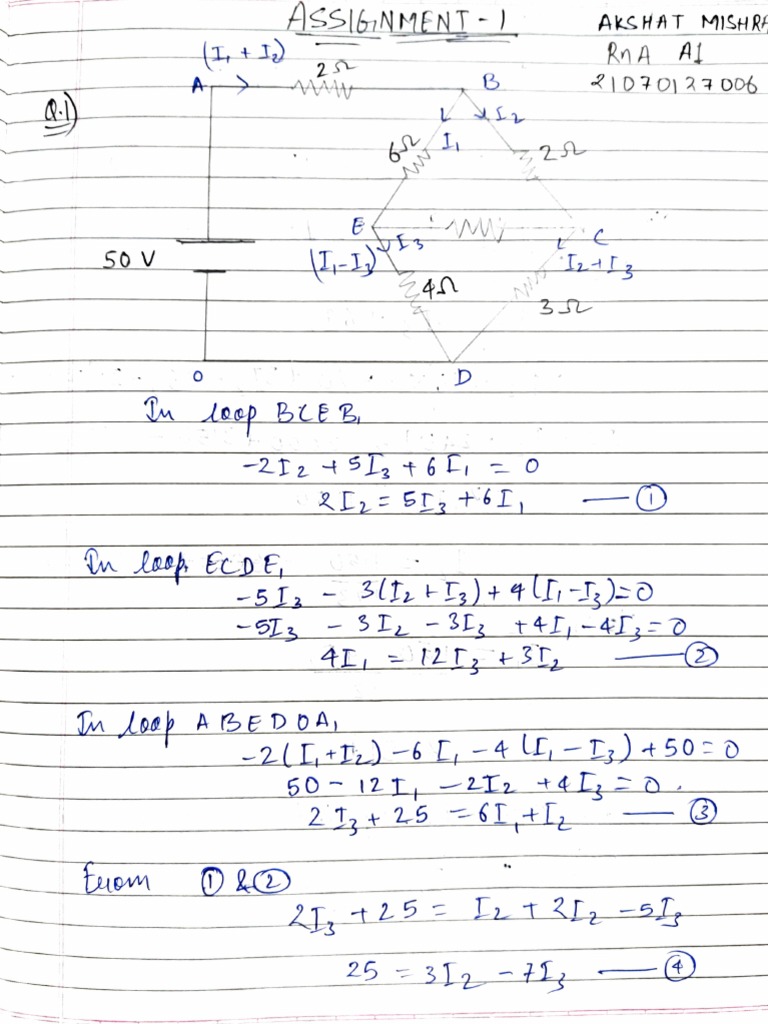 ASSIGNMENT - 1
AKSHAT MISHRA
RnA A1
21070127006
Q.1)
(I₁ + I₂)
A
2Ω
B
I₂
I₁
6Ω
2Ω
E
I₃
C
(I₁-I₃)
I₂+I₃
50 V
4Ω
3Ω
O
D
In loop BCEB,
-2I₂ + 5I₃ + 6I₁ = 0
2I₂ = 5I₃ + 6I₁ — ①
In loop ECDE,
-5I₃ - 3(I₂ + I₃) + 4(I₁-I₃)=0
-5I₃ - 3I₂ - 3I₃ + 4I₁ - 4I₃ = 0
4I₁ = 12I₃ + 3I₂ — ②
In loop ABEDOA,
-2(I₁+I₂) - 6I₁ - 4(I₁ - I₃) + 50 = 0
50 - 12I₁ - 2I₂ + 4I₃ = 0.
2I₃ + 25 = 6I₁ + I₂ — ③
From ① & ②
2I₃ + 25 = I₂ + 2I₂ - 5I₃
25 = 3I₂ - 7I₃ — ④